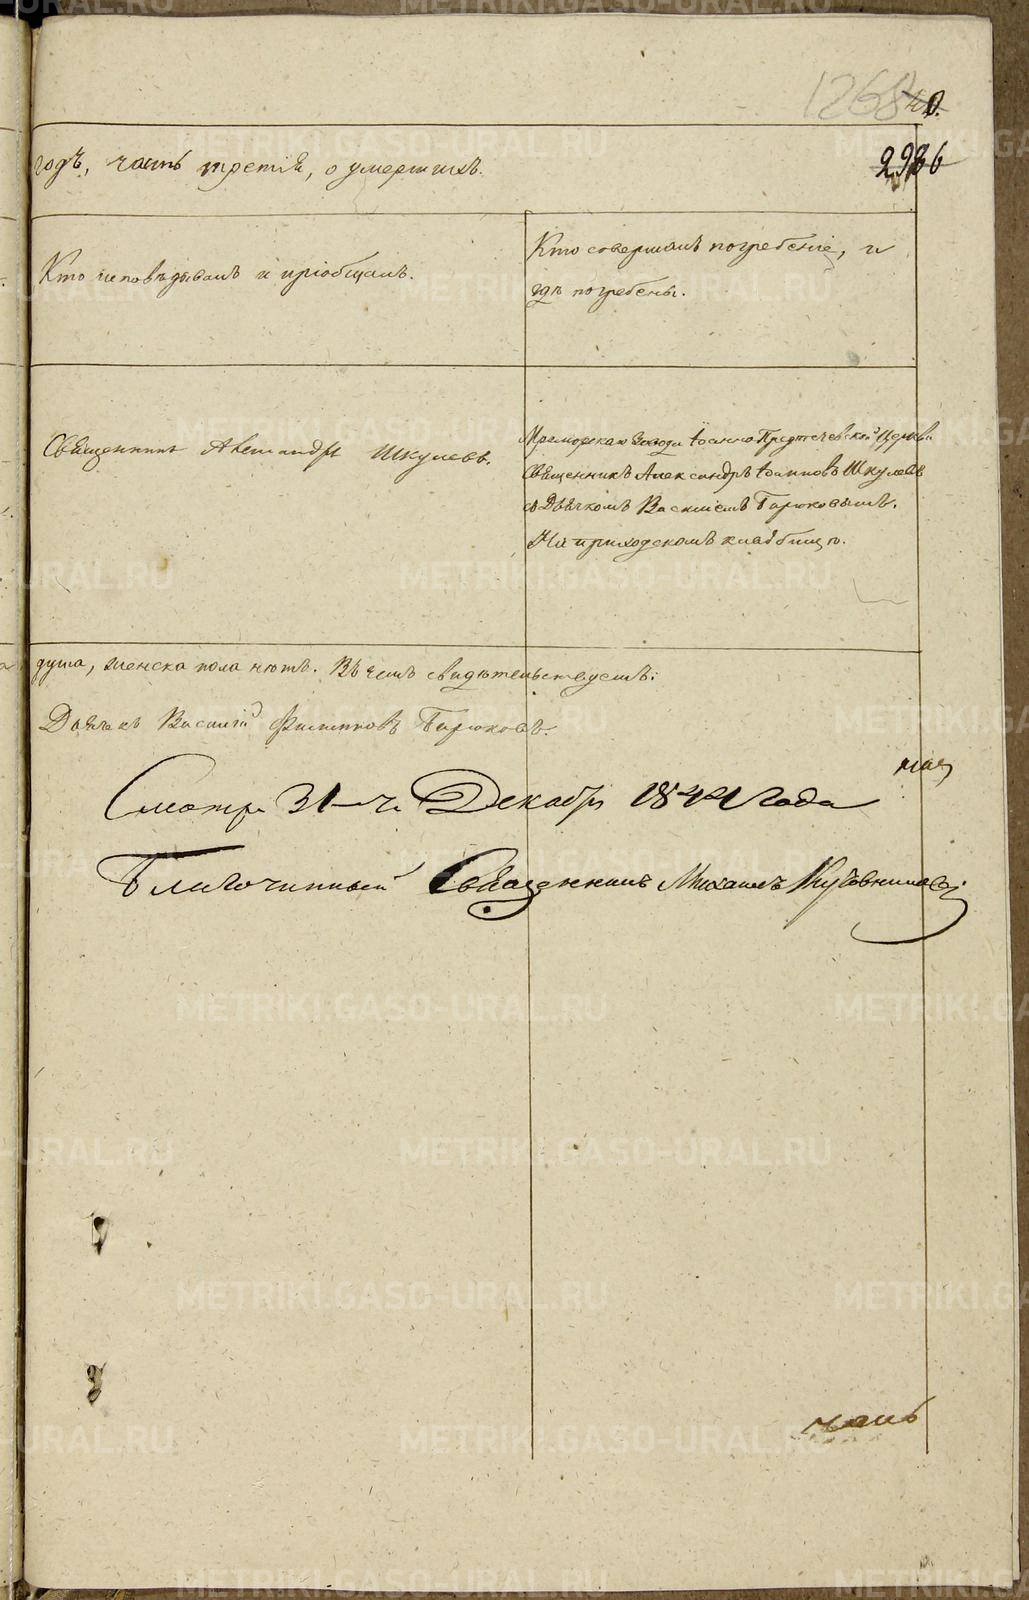 1268
40.
2986
годъ, часть третія, о умершихъ.
Кто исповѣдывалъ и пріобщалъ.
Кто совершалъ погребеніе, и
гдѣ погребены.
Священникъ Александръ Шкулевъ.
Мраморскаго Завода Іоанно-Предтечевской Церкви
Священникъ Александръ Іоанновъ Шкулевъ
съ Дьячкомъ Василіемъ Бирюковымъ.
На приходскомъ кладбищѣ.
душа, женска пола нѣтъ. Въ чемъ свидѣтельствуемъ:
Дьячекъ Василій Филиповъ Бирюковъ.
Смотр. 31-го Декабр 1841 года
Благочинный Священникъ Михаилъ
часть
METRIKI.GASO-URAL.RU